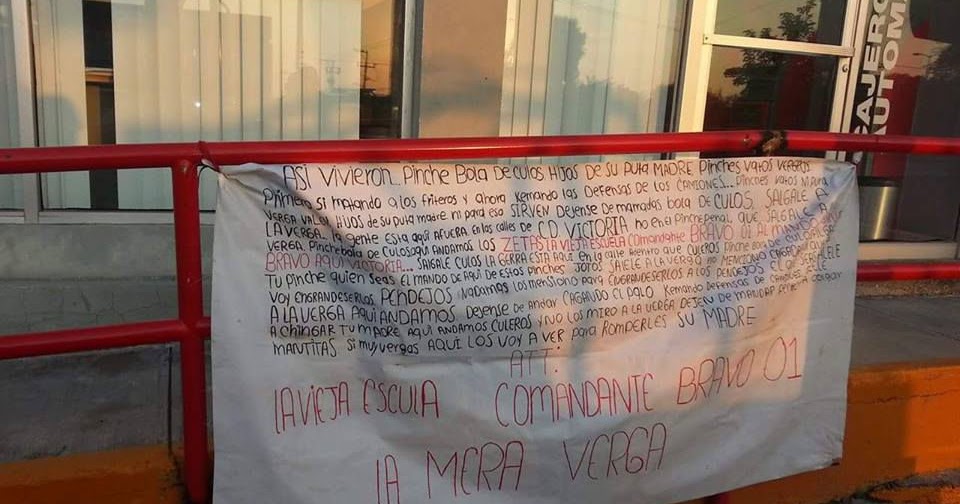 CAJERO
AUTOM
ASÍ VIVIERON... PINCHE BOLA DE CULOS HIJOS DE SU PUTA MADRE PINCHES VATOS VERGEROS
Primero si majando a los friteros y ahora kemando las Defensas de los camiones... pinches vatos ni para
VERGA VALEN HIJOS de su puta madre ni para eso SIRVEN DEJENSE DE mamadas bola de CULOS. SALGALE A
LA VERGA. la gente esta aquí AFUERA. en las calles de CD VICTORIA no en el Pinche penal. QUE SALGALE A
VERGA. Pinche bola de CULOS aquí ANDAMOS LOS ZETAS LA VIEJA ESCUELA comandante BRAVO 01 AL MANDO
BRAVO AQUI VICTORIA... SALGALE CULOS LA GERRA ESTA AQUÍ en la calle CULEROS Pinche bola de
Tu pinche quien seas EL MANDO DE AQUÍ DE ESTOS PINCHES JOTOS SALELE A LA VERGA no MENCIONO
VOY ENGRANDESERLOS PENDEJOS nadamas los menciono para ENGRANDESERLOS A LOS PENDEJOS
A LA VERGA AQUI ANDAMOS DEJENSE de Andar CAGANDO EL PALO kemando DEFENSAS DE
A CHINGAR TU MADRE AQUÍ ANDAMOS CULEROS y NO LOS MIRO A LA VERGA DEJEN DE MANDAR
MANTITAS SI MUY VERGAS AQUÍ LOS VOY A VER para ROMPERLES SU MADRE
ATT:
LA VIEJA ESCULA COMANDANTE BRAVO 01
LA MERA VERGA